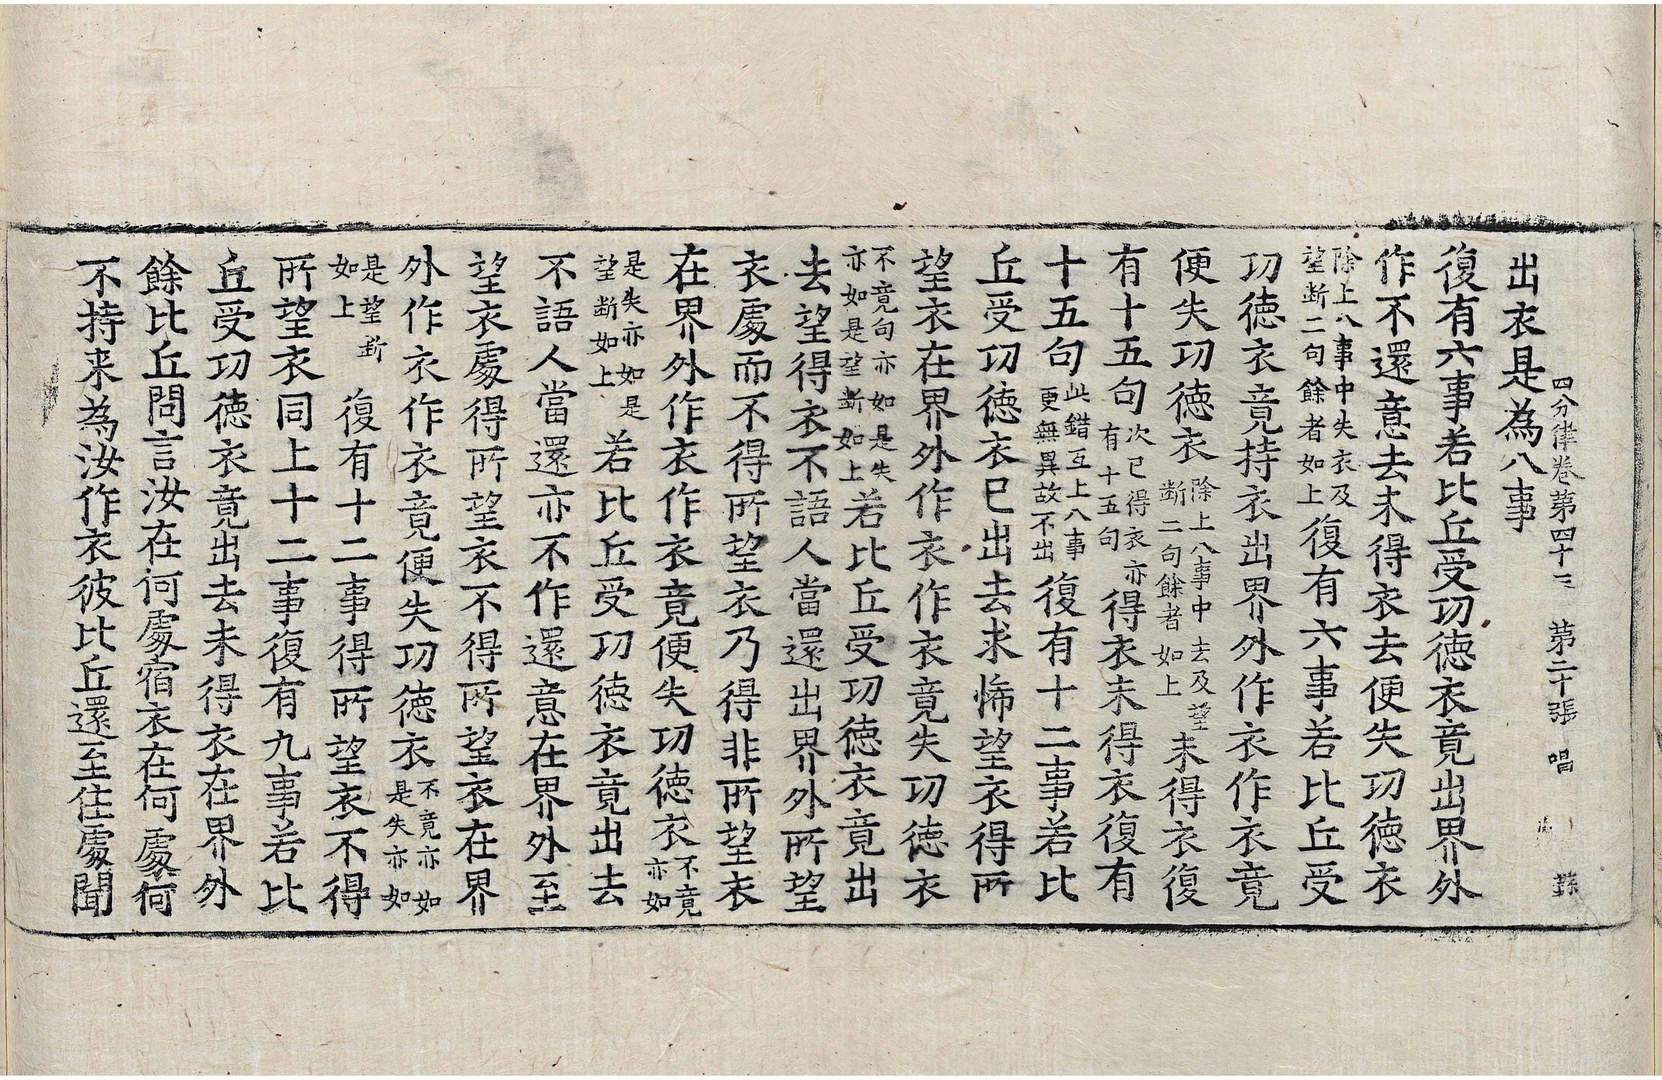 四分律卷第四十三　第二十張　唱
出衣是為八事
復有六事若比丘受功德衣竟出界外
作不還意去未得衣去便失功德衣
除上八事中失衣及
望断二句餘者如上
復有六事若比丘受
功德衣竟持衣出界外作衣作衣竟
便失功德衣
除上八事中去及望
断二句餘者如上
未得衣復
有十五句
次已得衣亦
有十五句
得衣未得衣復有
十五句
此錯互上八事
更無異故不出
復有十二事若比
丘受功德衣已出去求悕望衣得所
望衣在界外作衣作衣竟失功德衣
不竟句亦如是失
亦如是望断如上
若比丘受功德衣竟出
去望得衣不語人當還出界外所望
衣處而不得所望衣乃得非所望衣
在界外作衣作衣竟便失功德衣
不竟
亦如
是失亦如是
望断如上
若比丘受功德衣竟出去
不語人當還亦不作還意在界外至
望衣處得所望衣不得所望衣在界
外作衣作衣竟便失功德衣
不竟亦如
是失亦如
是望断
如上
復有十二事得所望衣不得
所望衣同上十二事復有九事若比
丘受功德衣竟出去未得衣在界外
餘比丘問言汝在何處宿衣在何處何
不持来為汝作衣彼比丘還至住處聞